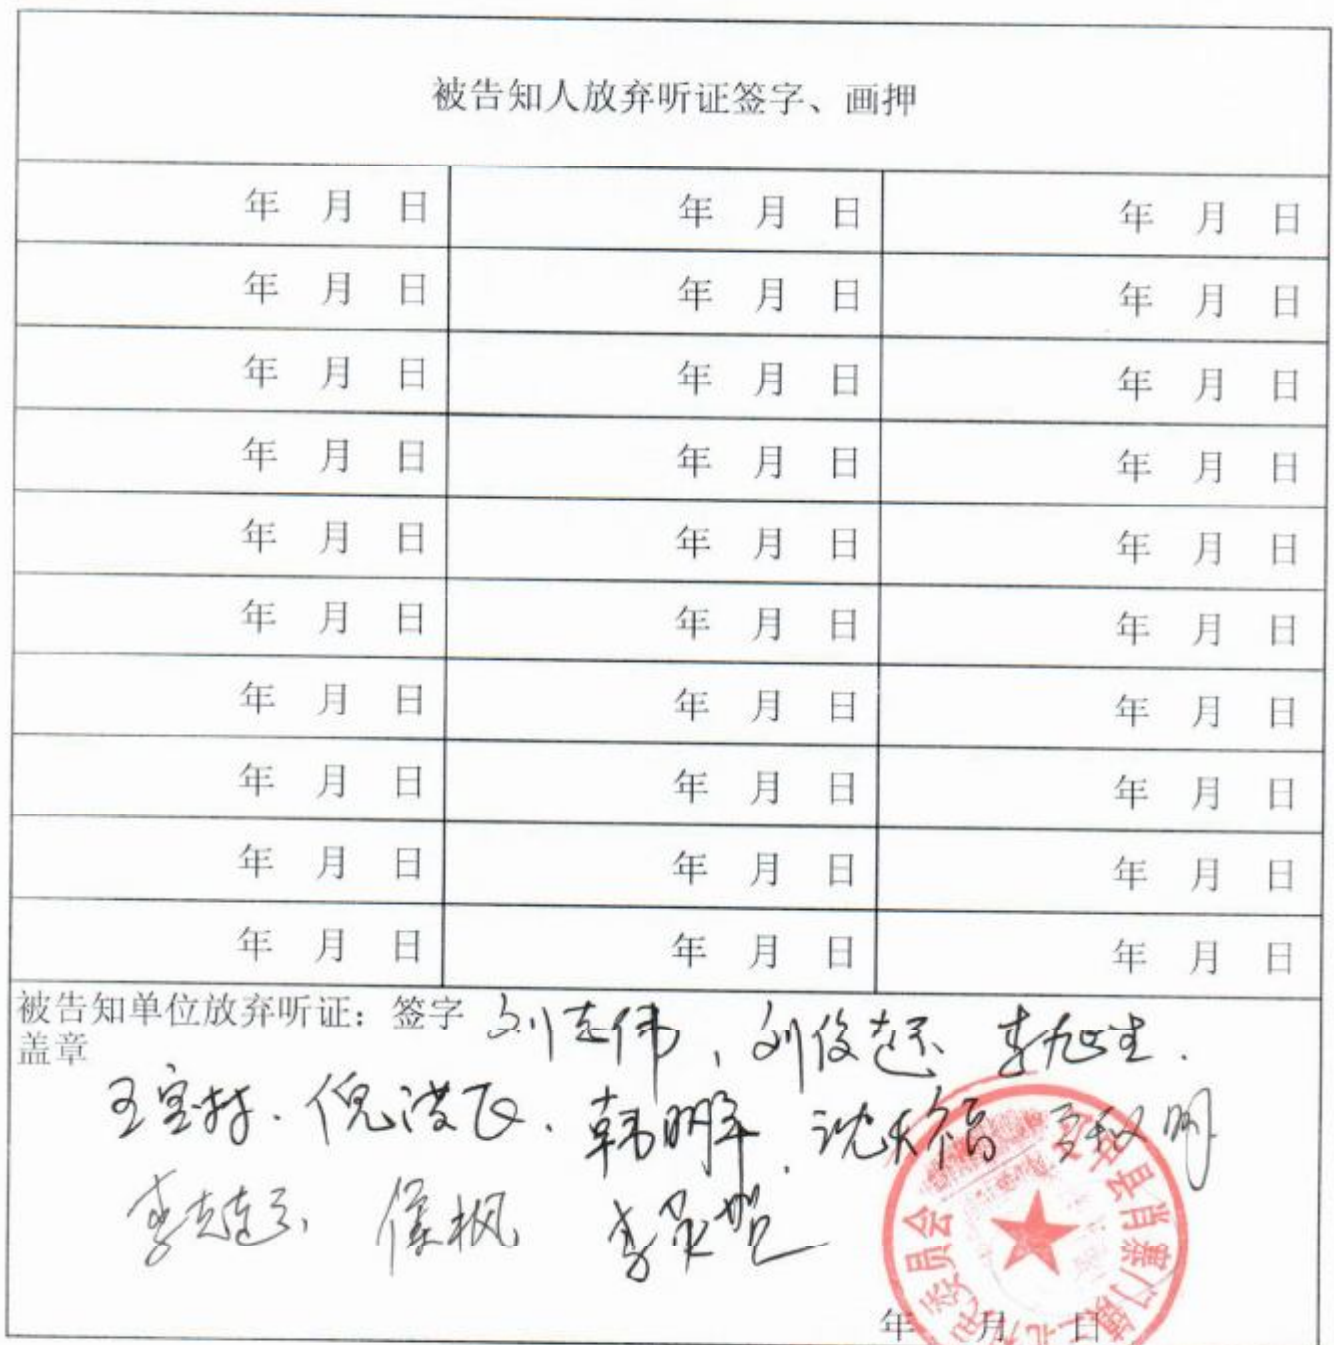 被告知人放弃听证签字、画押
年 月 日 年 月 日 年 月 日
年 月 日 年 月 日 年 月 日
年 月 日 年 月 日 年 月 日
年 月 日 年 月 日 年 月 日
年 月 日 年 月 日 年 月 日
年 月 日 年 月 日 年 月 日
年 月 日 年 月 日 年 月 日
年 月 日 年 月 日 年 月 日
年 月 日 年 月 日 年 月 日
年 月 日 年 月 日 年 月 日
被告知单位放弃听证：签字 刘志伟，刘俊
盖章
沈天福
年 月 日
县肖寨门镇
委员会